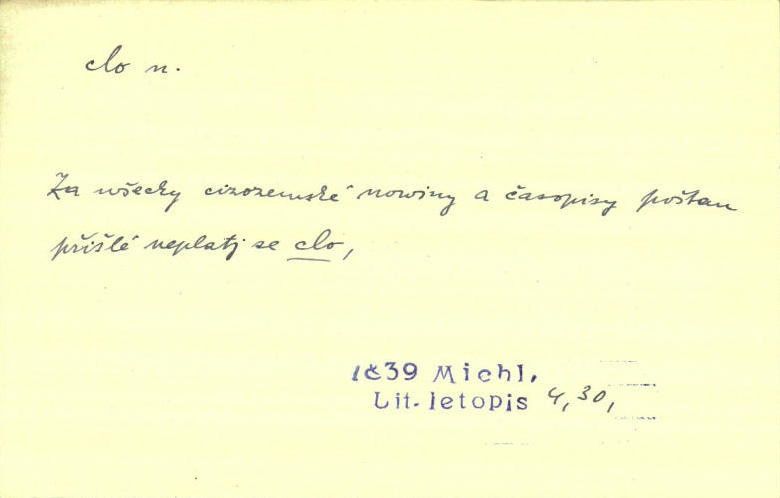 clo n.
Za wšecky cizozemské nowiny a časopisy poštau
přišlé neplatj se clo,
1839 Michl,
Lit. letopis 4,30,